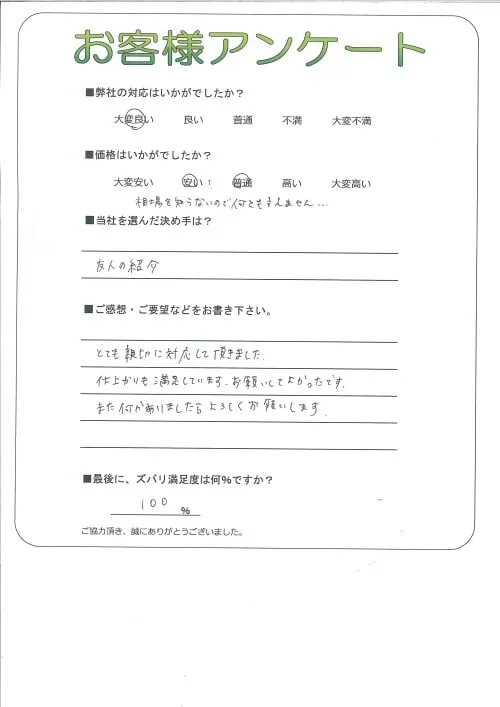 お客様アンケート
■弊社の対応はいかがでしたか？
大変良い 良い 普通 不満 大変不満
■価格はいかがでしたか？
大変安い 安い！ 普通 高い 大変高い
相場を知らないので何とも言えません…
■当社を選んだ決め手は？
友人の紹介
■ご感想・ご要望などをお書き下さい。
とても親切に対応して頂きました。
仕上がりも満足しています。お願いしてよかったです。
また何かありましたらよろしくお願いします
■最後に、ズバリ満足度は何%ですか？
100 %
ご協力頂き、誠にありがとうございました。